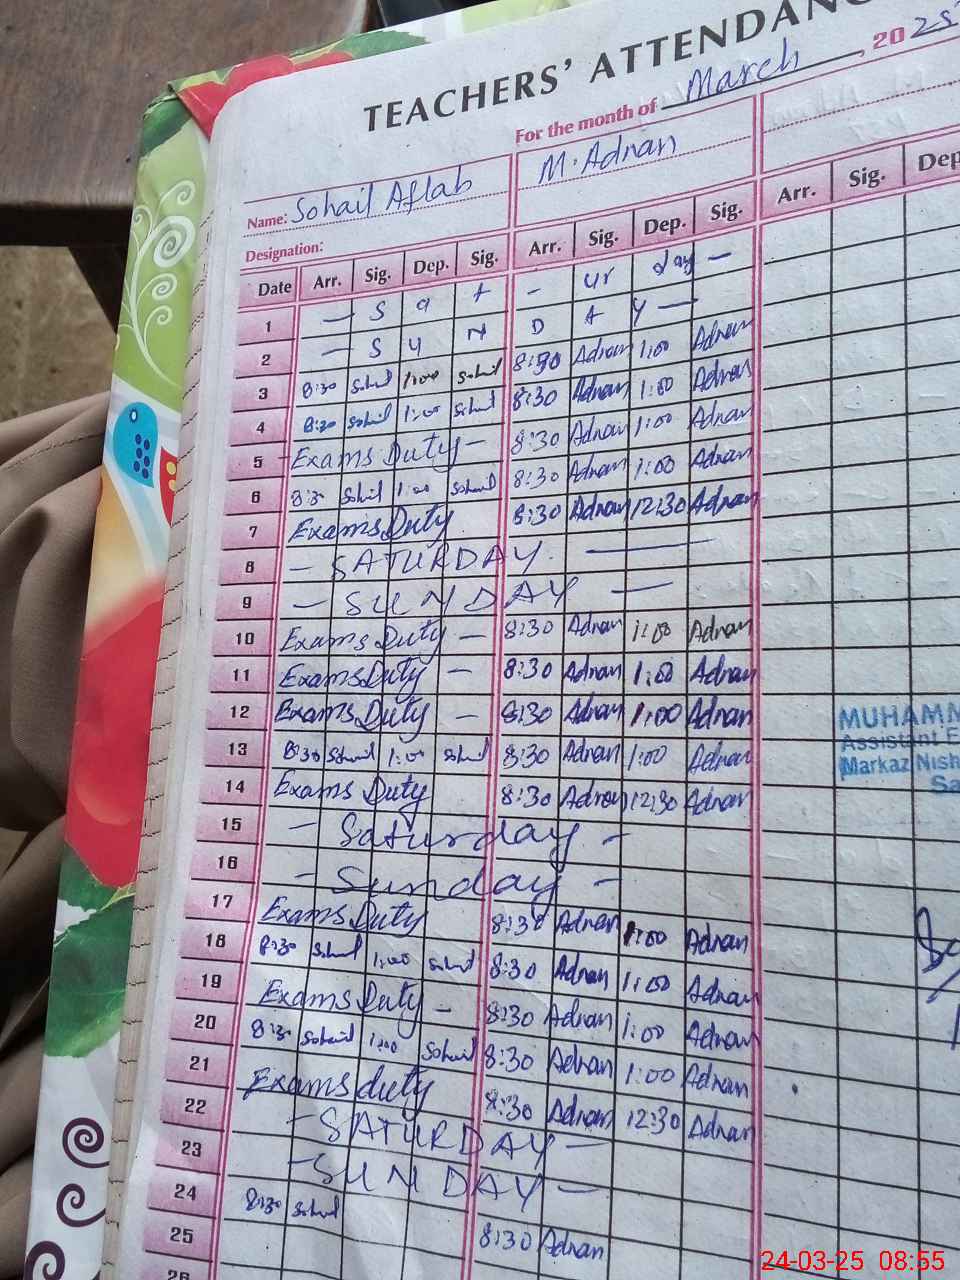 TEACHERS' ATTENDANC
For the month of March, 2025
Name: Sohail Aftab M. Adnan
Designation:
Date Arr. Sig. Dep. Sig. Arr. Sig. Dep. Sig. Arr. Sig. Dep
1 — S a t - ur day —
2 — S U N D A Y —
3 8:30 Sohail 1:00 Sohail 8:30 Adnan 1:00 Adnan
4 8:30 Sohail 1:00 Sohail 8:30 Adnan 1:00 Adnan
5 Exams Duty — 8:30 Adnan 1:00 Adnan
6 8:30 Sohail 1:00 Sohail 8:30 Adnan 1:00 Adnan
7 Exams Duty 8:30 Adnan 12:30 Adnan
8 — SATURDAY. —
9 — SUNDAY —
10 Exams Duty — 8:30 Adnan 1:00 Adnan
11 Exams Duty — 8:30 Adnan 1:00 Adnan
12 Exams Duty — 8:30 Adnan 1:00 Adnan
13 8:30 Sohail 1:00 Sohail 8:30 Adnan 1:00 Adnan
14 Exams Duty 8:30 Adnan 12:30 Adnan
15 — Saturday —
16 — Sunday —
17 Exams Duty 8:30 Adnan 1:00 Adnan
18 8:30 Sohail 1:00 Sohail 8:30 Adnan 1:00 Adnan
19 Exams Duty — 8:30 Adnan 1:00 Adnan
20 8:30 Sohail 1:00 Sohail 8:30 Adnan 1:00 Adnan
21 Exams duty 8:30 Adnan 12:30 Adnan
22 — SATURDAY —
23 — SUNDAY —
24 8:30 Sohail 8:30 Adnan
25
26
MUHAMM
Assistant E
Markaz Nish
Sa
24-03-25 08:55